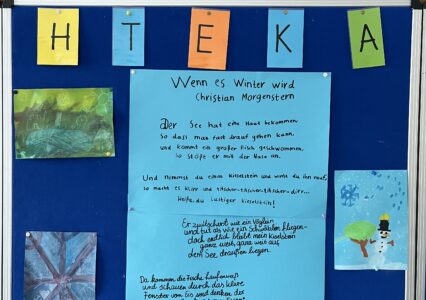 H T E K A
Wenn es Winter wird
Christian Morgenstern
Der See hat eine Haut bekommen,
so dass man fast drauf gehen kann,
und kommt ein großer Fisch geschwommen,
so stößt er mit der Nase an.
Und nimmst du einen Kieselstein und wirfst du ihn rauf,
so macht es klirr und titscher-titscher-titscher-dirr...
Heißa, du lustiger Kieselstein!
Er zwitschert wie ein Vöglein
und tut als wie ein Schwälblein fliegen-
doch endlich bleibt mein Kieselstein
ganz weit, ganz weit auf
dem See draußen liegen.
Da kommen die Fische haufenweis
und schauen durch das klare
Fenster vom Eis und denken, der